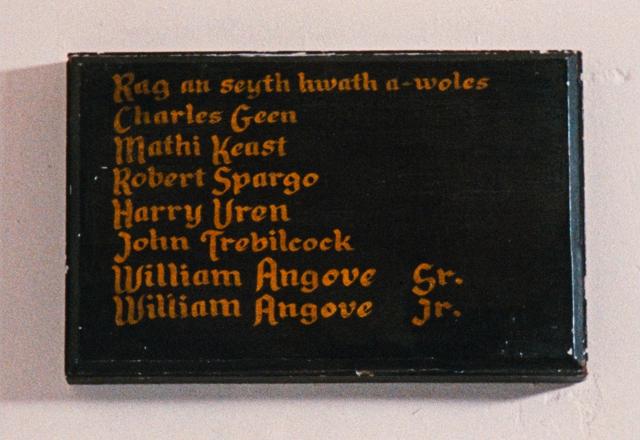 Rag an seyth hwath a-woles
Charles Geen
Mathi Keast
Robert Spargo
Harry Uren
John Trebilcock
William Angove Sr.
William Angove Jr.